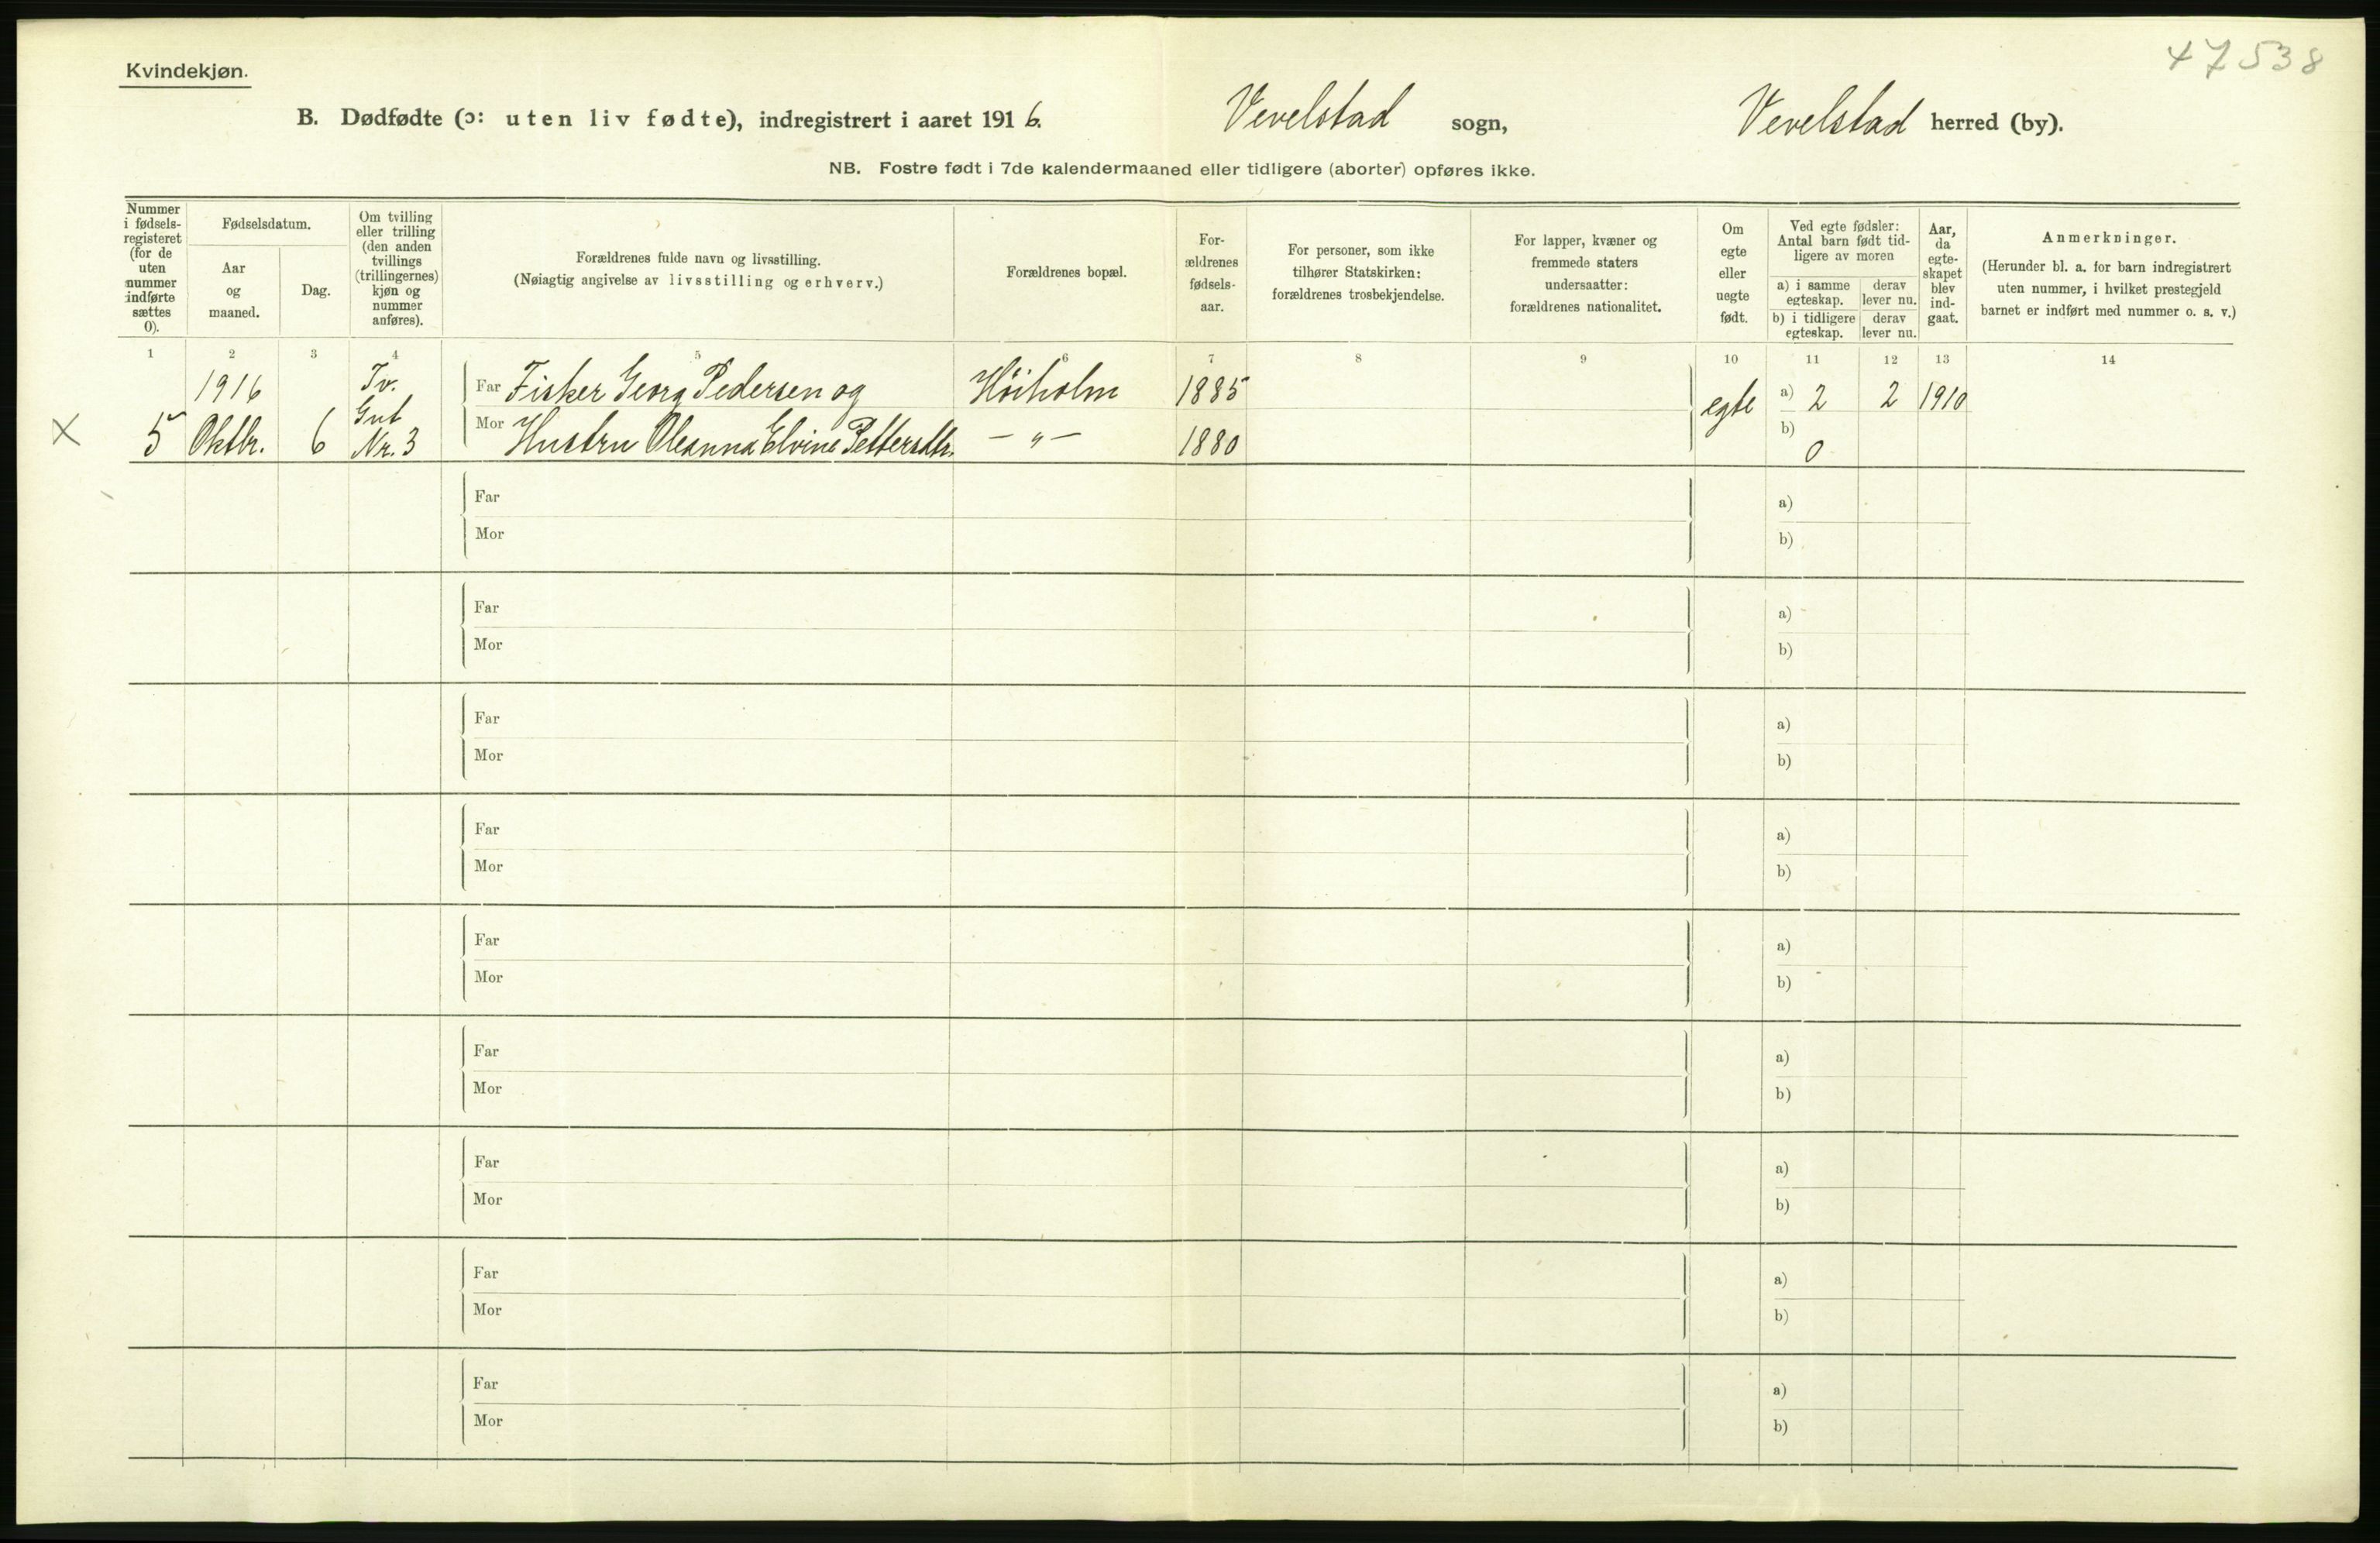 47538
Kvindekjøn.
B. Dødfødte (ɔ: uten liv fødte), indregistrert i aaret 1916. Vevelstad sogn, Vevelstad herred (by).
NB. Fostre født i 7de kalendermaaned eller tidligere (aborter) opføres ikke.
Nummer
i fødsels-
registeret
(for de
uten
nummer
indførte
sættes
0).
Fødselsdatum.
Aar
og
maaned.
Dag.
Om tvilling
eller trilling
(den anden
tvillings
(trillingernes)
kjøn og
nummer
anføres).
Forældrenes fulde navn og livsstilling.
(Nøiagtig angivelse av livsstilling og erhverv.)
Forældrenes bopæl.
For-
ældrenes
fødsels-
aar.
For personer, som ikke
tilhører Statskirken:
forældrenes trosbekjendelse.
For lapper, kvæner og
fremmede staters
undersaatter:
forældrenes nationalitet.
Om
egte
eller
uegte
født.
Ved egte fødsler:
Antal barn født tid-
ligere av moren
a) i samme
egteskap.
derav
lever nu.
b) i tidligere
egteskap.
derav
lever nu.
Aar,
da
egte-
skapet
blev
ind-
gaat.
Anmerkninger.
(Herunder bl. a. for barn indregistrert
uten nummer, i hvilket prestegjeld
barnet er indført med nummer o. s. v.)
1 2 3 4 5 6 7 8 9 10 11 12 13 14
1916 Tv. Far Fisker Georg Pedersen og Höiholm 1885 egte a) 2 2 1910
Gut
X 5 Oktbr. 6 Nr. 3 Mor Hustru Oleanna Elvine Pettersdtr. – " – 1880 b) 0
Far a)
Mor b)
Far a)
Mor b)
Far a)
Mor b)
Far a)
Mor b)
Far a)
Mor b)
Far a)
Mor b)
Far a)
Mor b)
Far a)
Mor b)
Far a)
Mor b)